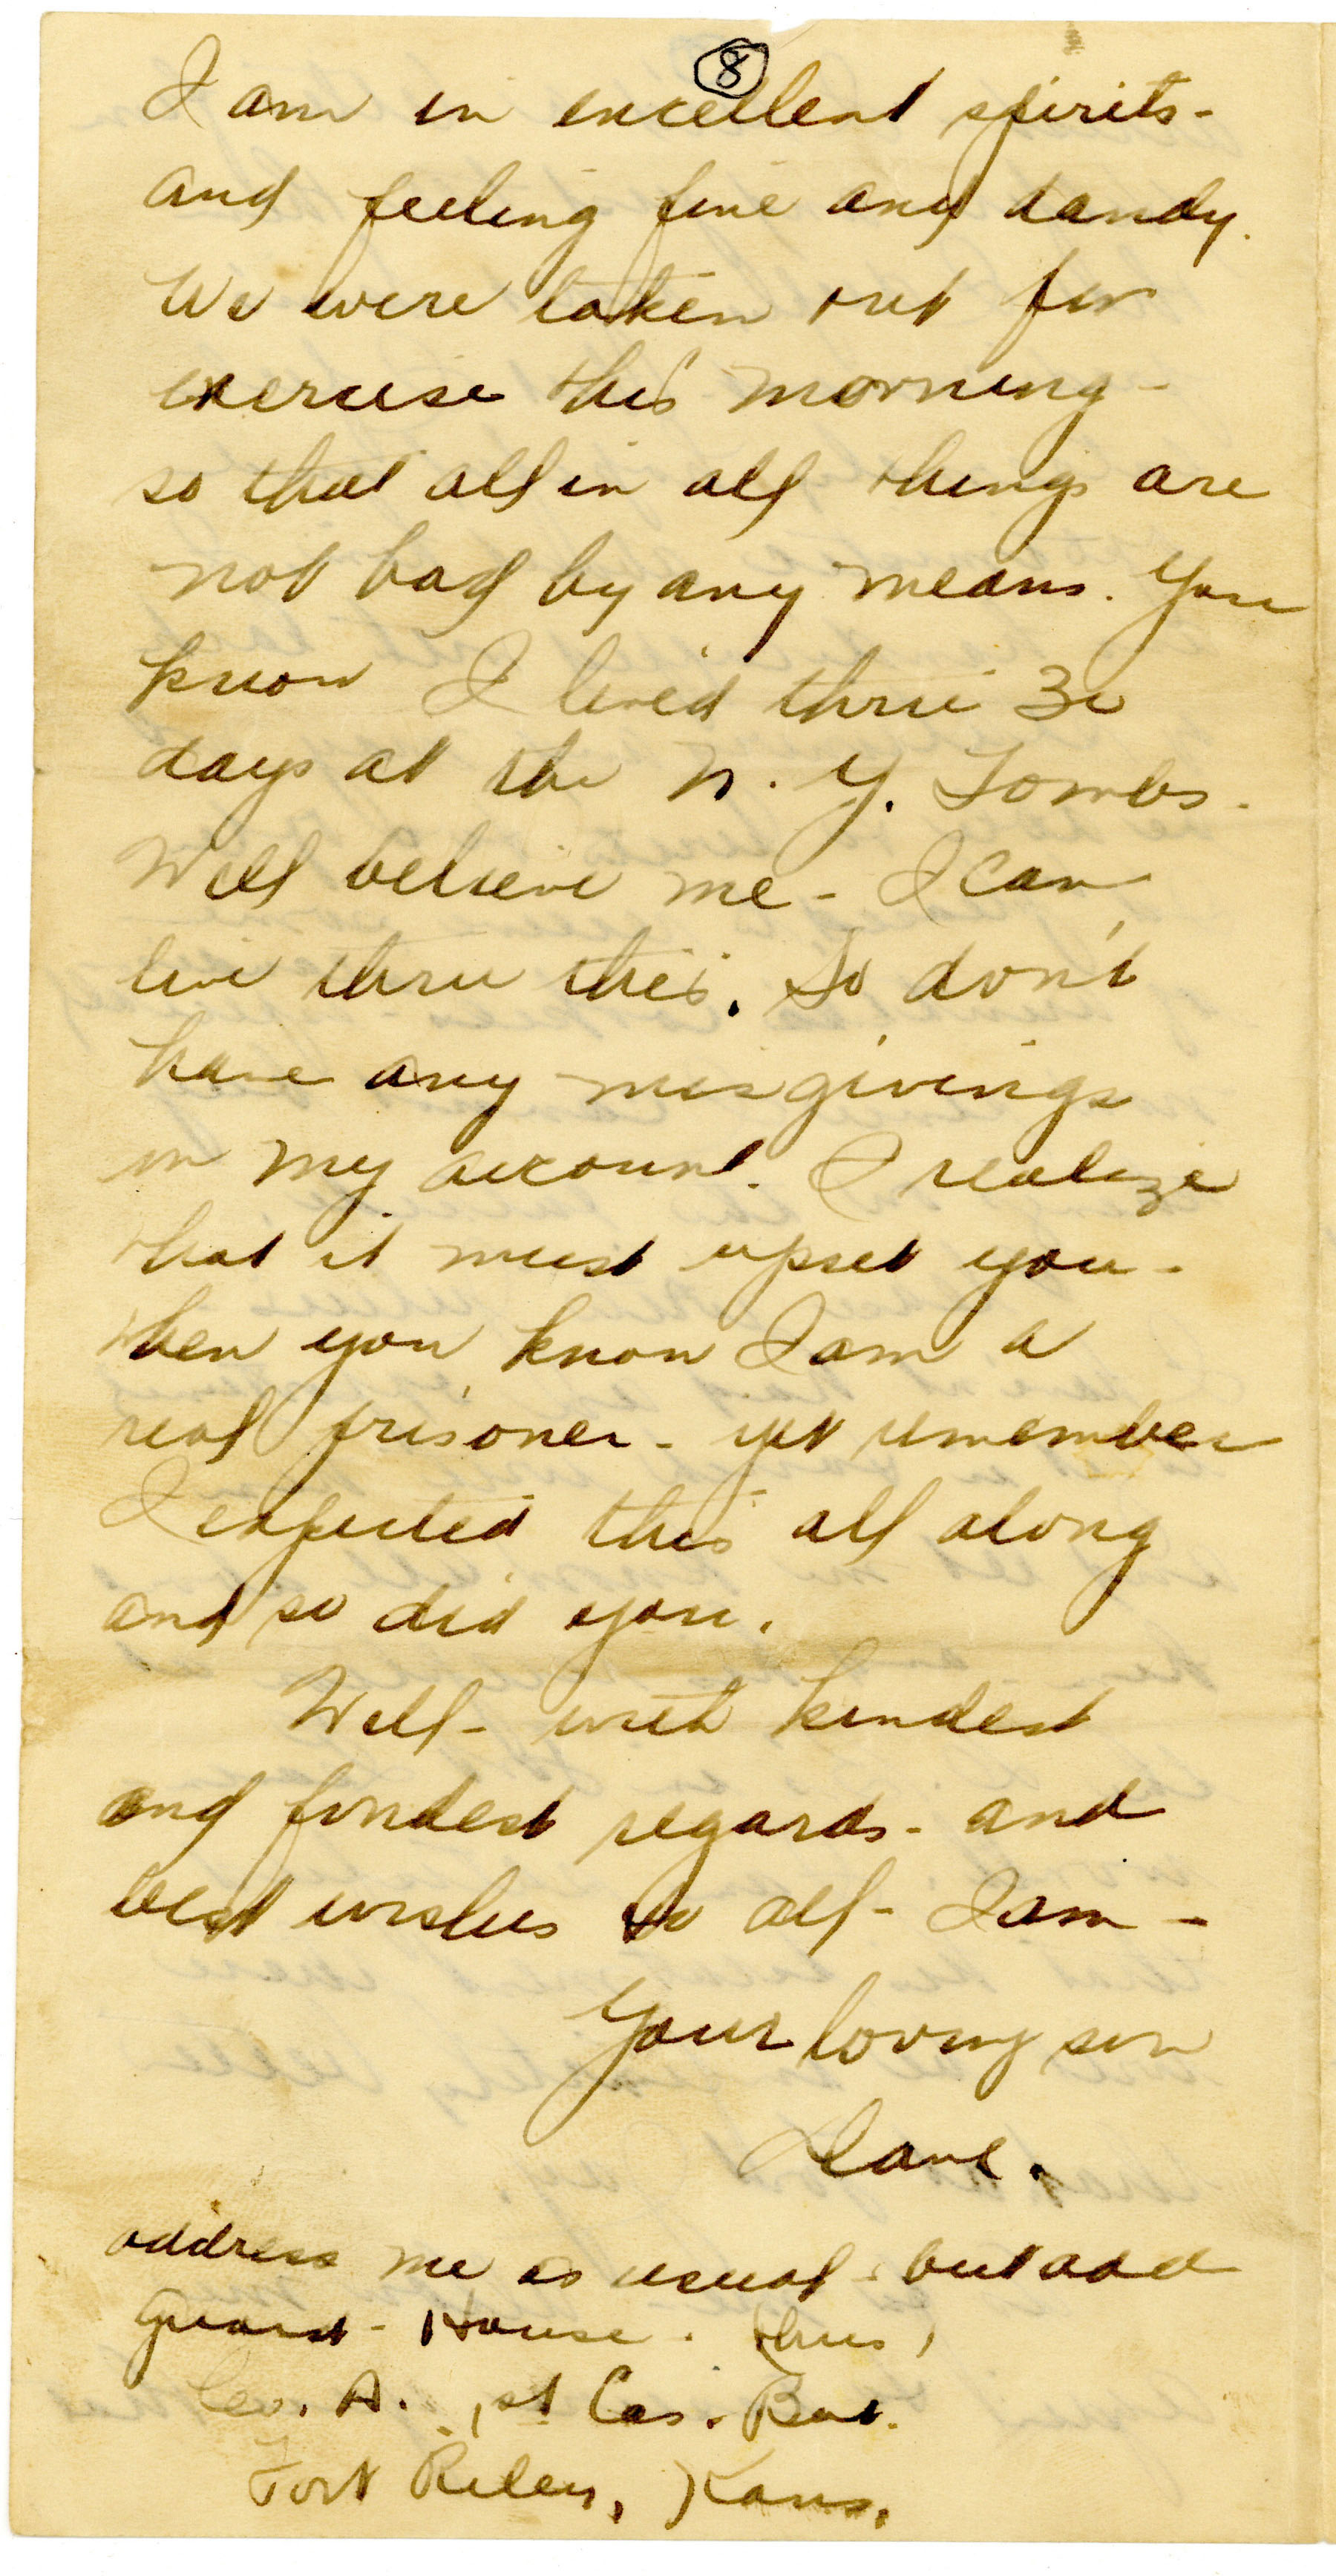 8
I am in excellent spirits-
and feeling fine and dandy.
We were taken out for
exercise this morning-
so that all in all things are
not bad by any means. You
know I lived thru 30
days at the N. Y. Tombs.
Well believe me - I can
live thru this. So don't
have any misgivings
on my account. I realize
that it must upset you-
when you know I am a
real prisoner - yet remember
I expected this all along
and so did you.
Well - with kindest
and fondest regards - and
best wishes to all - I am -
Your loving son
Dave.
address me as usual - but add
Guard - House. thus,
Co. A. 1st Cas. Bat.
Fort Riley, Kans.